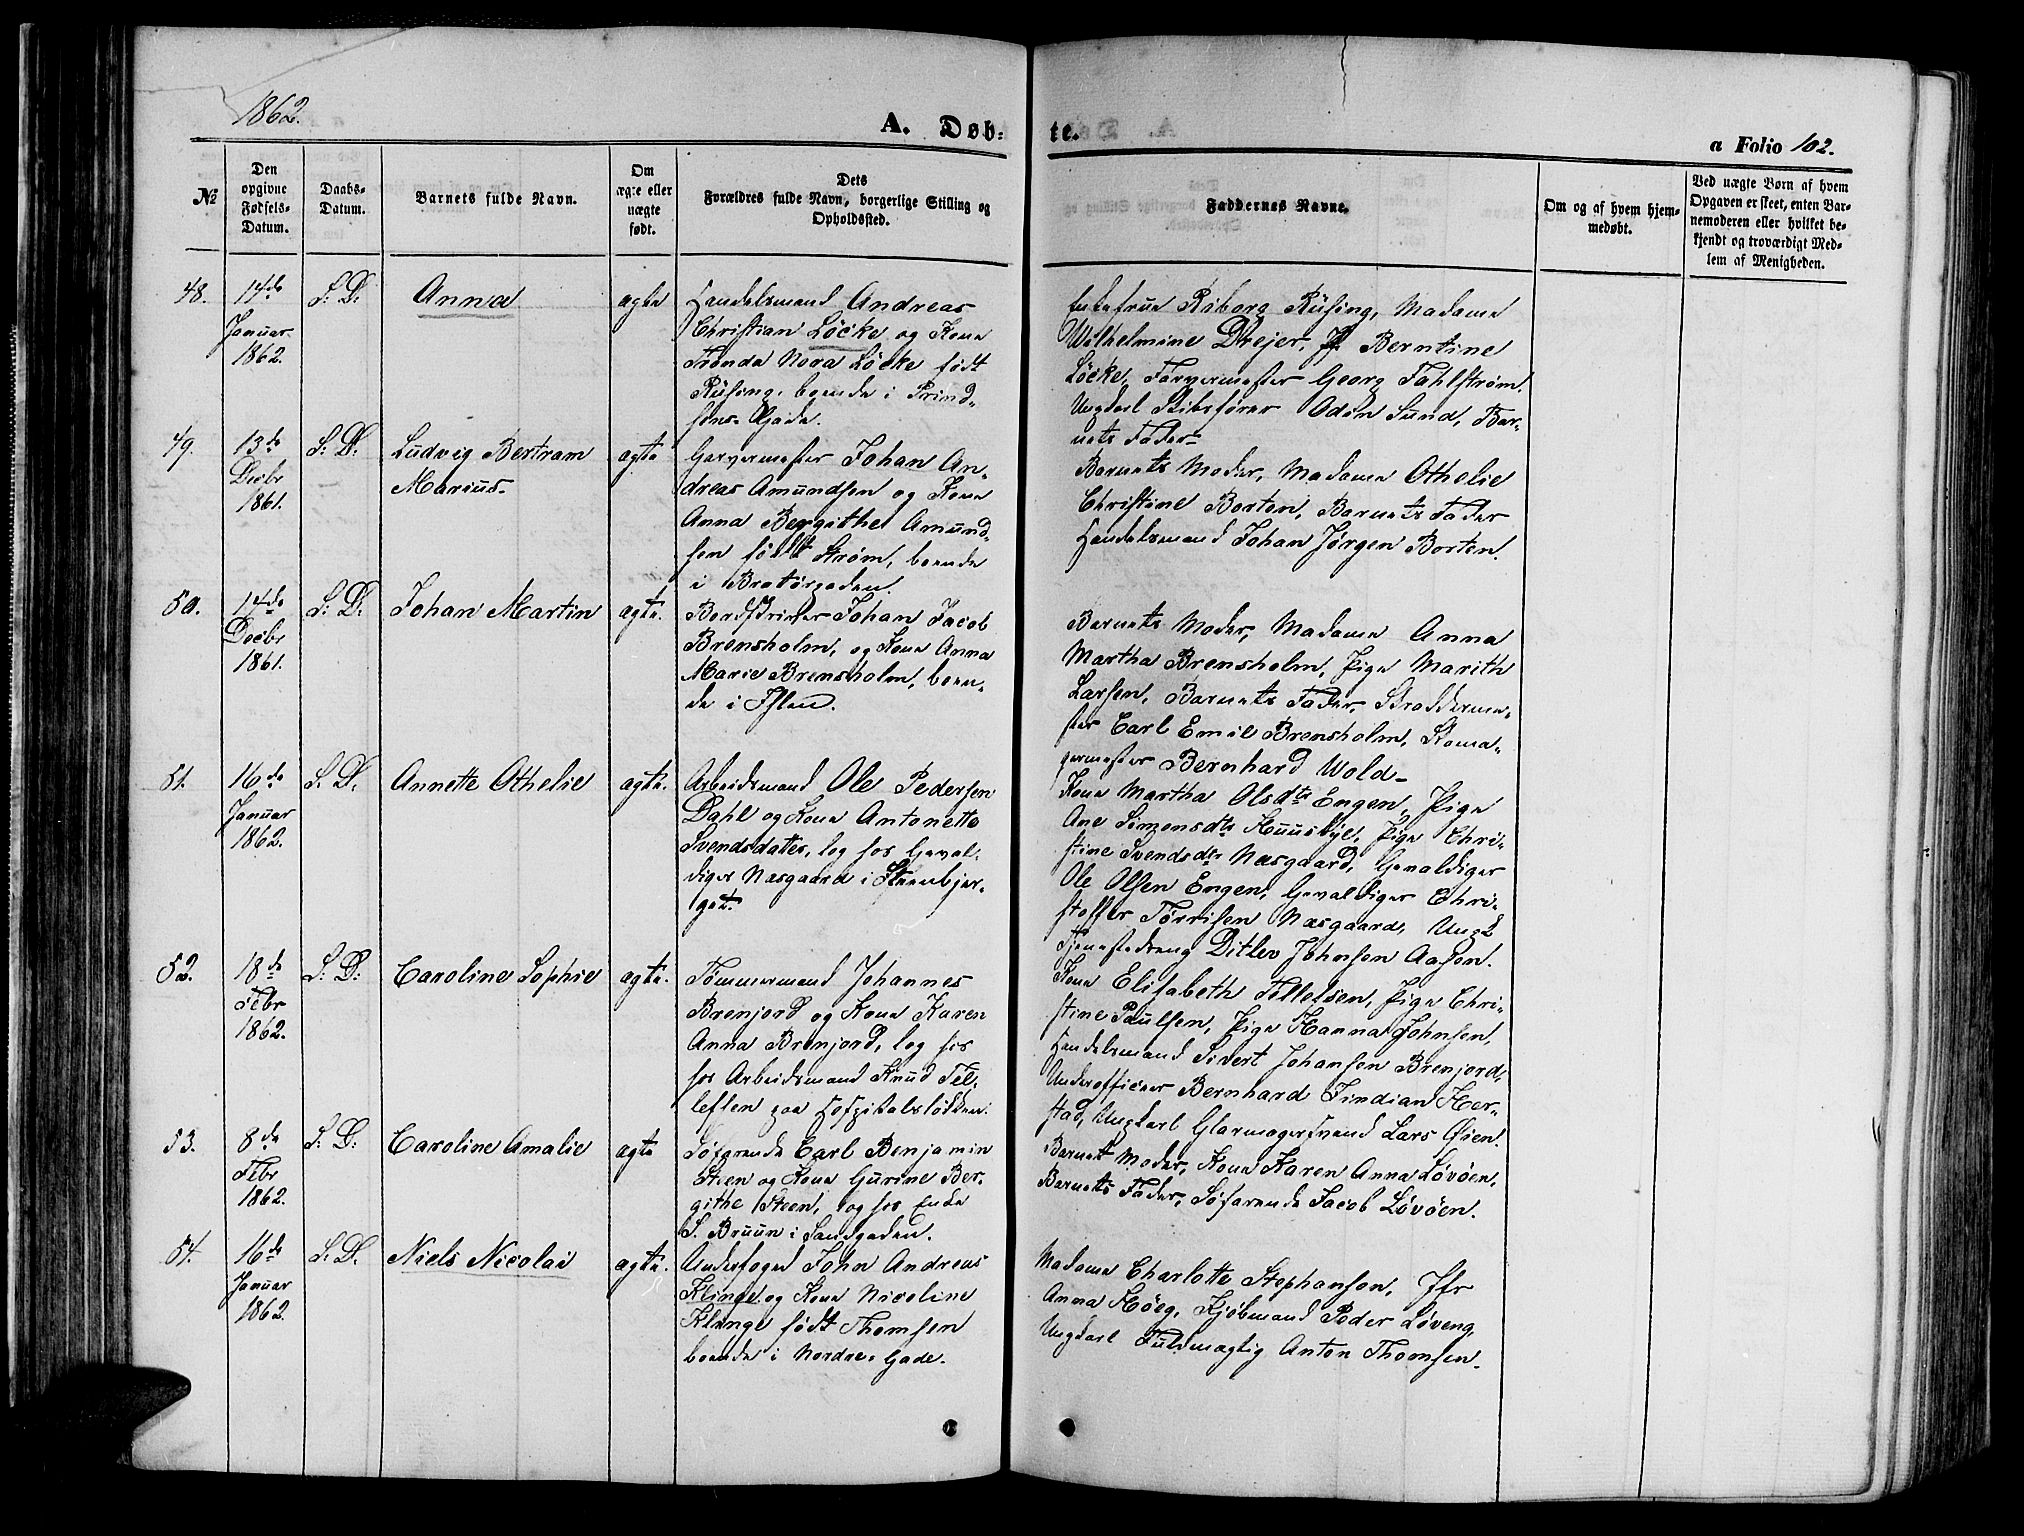 1862.
A. Døb-
te.
a Folio 102.
№
Den
opgivne
Fødsels-
Datum.
Daabs-
Datum.
Barnets fulde Navn.
Om
ægte eller
uægte
født.
Dets
Forældres fulde Navn, borgerlige Stilling og
Opholdssted.
Faddernes Navne.
Om og af hvem hjem-
medøbt.
Ved uægte Børn af hvem
Opgaven er skeet, enten Bar-
nemoderen eller hvilket be-
kjendt og troværdigt Med-
lem af Menigheden.
48.
14de
Januar
1862.
S: D:
Anna
ægte
Handelsmand Andreas
Christian Löcke og Kone
Tronda Nora Löcke født
Rüsing, boende i Prind-
sens-Gade.
Enkefrue Riborg Rüsing, Madame
Wilhelmine Drejer, Jfr Berntine
Löcke, Farvermester Georg Fahlstrøm.
Ungkarl Skibsfører Oden Sund, Bar-
nets Fader-
49.
13de
Decbr
1861.
S: D:
Ludvig Bertram
Marius.
ægte
Garvermester Johan An-
dreas Amundsen og Kone
Anna Bergithe Amund-
sen født Strøm, boende
i Bratørgaden.
Barnets Moder, Madame Othelie
Christine Borten, Barnets Fader
Handelsmand Johan Jørgen Borten.
50.
14de
Decbr
1861.
S: D:
Johan Martin
ægte.
Bordskriver Johan Jacob
Brensholm, og Kone Anna
Marie Brensholm, boen-
de i Ihlen.
Barnets Moder, Madame Anna
Martha Brensholm, Pige Marith
Larsen, Barnets Fader, Skreddermes-
ter Carl Emil Brensholm, Skoma-
germester Bernhard Wold-
51.
16de
Januar
1862.
S. D.
Annette Othelie
ægte.
Arbeidsmand Ole Pedersen
Dahl og Kone Antonette
Svendsdatter, log hos Geval-
diger Næsgaard i Steenbjer-
get.
Kone Martha Olsdtr Engen, Pige
Ane Simensdtr Huusbye, Pige Chri-
stine Svendsdtr Næsgaard, Gevaldiger
Ole Olsen Engen, Gevaldiger Chri-
stoffer Tørrisen Næsgaard, Ungk
Tjenestedreng Ditlev Johnsen Aasen.
52.
18de
Febr
1862.
S: D:
Caroline Sophie
ægte.
Tømmermand Johannes
Brenjord og Kone Karen
Anna Brenjord, log hos
hos Arbeidsmand Knud Tel-
lefsen paa Hospitalsløkken.
Kone Elisabeth Tellefsen, Pige Chri-
stine Paulsen, Pige Hanna Johnsen,
Handelsmand Sivert Johansen Brenjord,
Underofficeer Bernhard Findian Her-
stad, Ungkarl Glarmagersvend Lars Øien.
53.
8de
Febr
1862.
S: D:
Caroline Amalie
ægte
Søfarende Carl Benjamin
Steen og Kone Gurine Ber-
githe Steen, log hos Enke
S. Bruun i Sandgaden.
Barnets Moder, Kone Karen Anna Løvøen,
Barnets Fader, Søfarende Jacob Løvøen.
54.
16de
Januar
1862.
S. D.
Niels Nicolai
ægte.
Underfoged John Andreas
Klinge og Kone Nicoline
Klinge født Thomsen
boende i Nordre-Gade.
Madame Charlotte Stephanson, Jfr
Anna Høeg, Kjøbmand Peder Løveng,
Ungkarl Fuldmægtig Anton Thomsen.